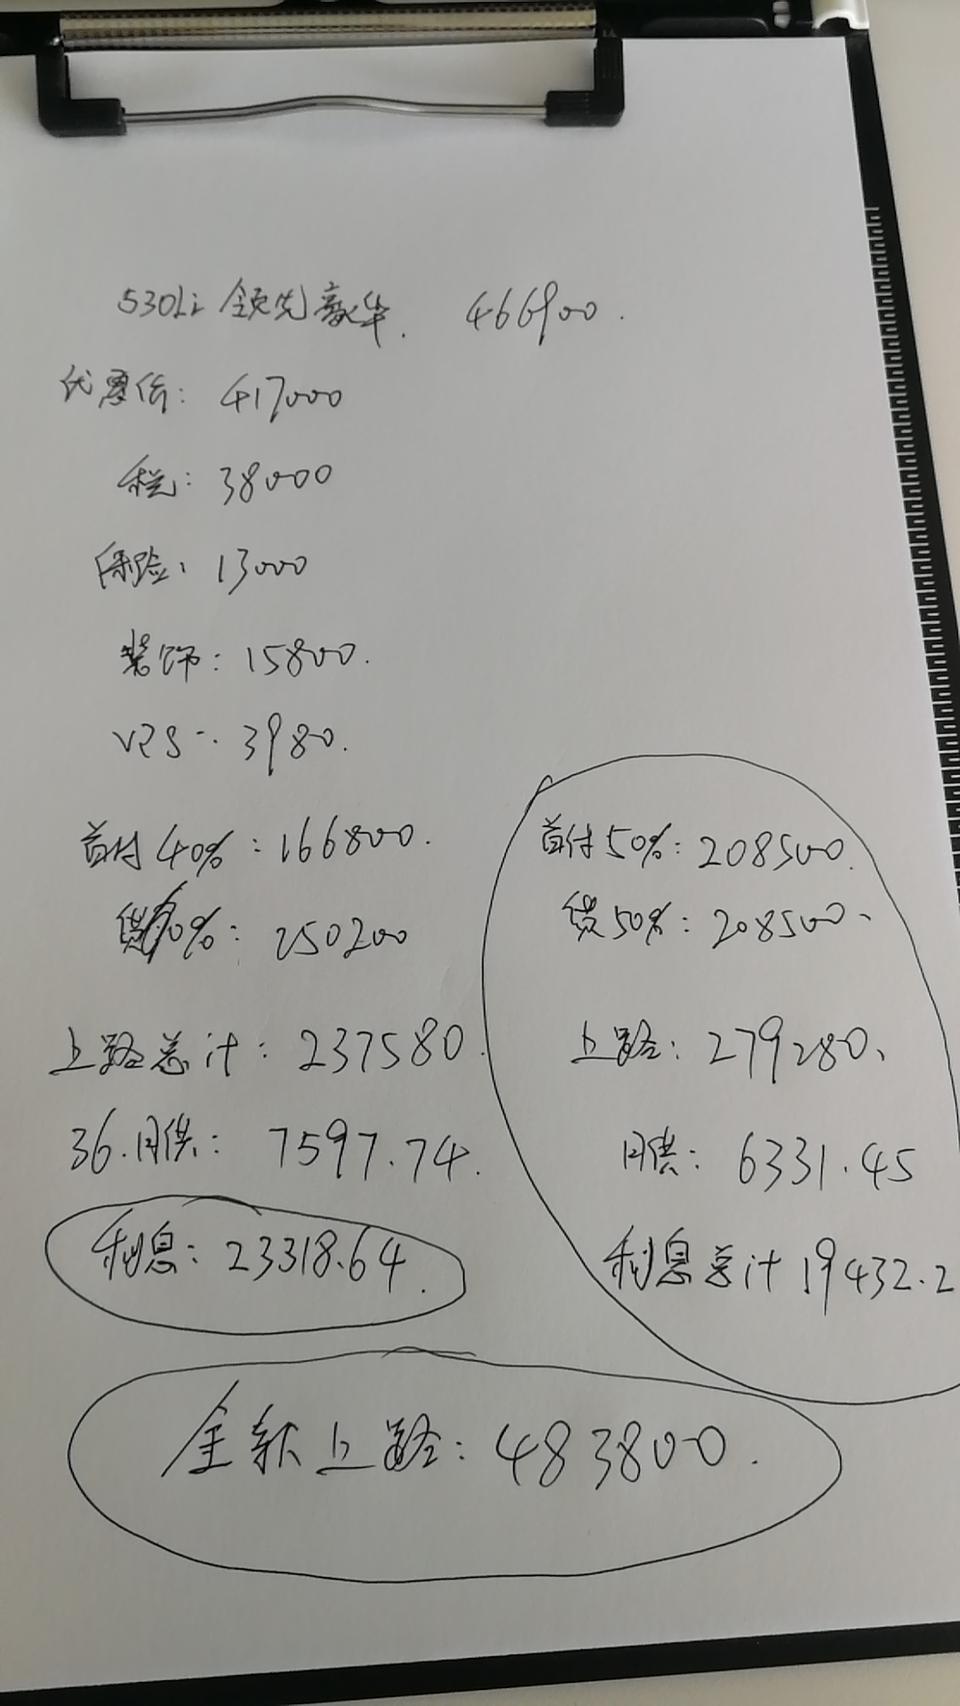 530Li 领先豪华. 466900.
优惠价: 417000
税: 38000
保险: 13000
装饰: 15800.
3980.
首付40%: 166800.
贷60%: 250200
上路总计: 237580.
36.月供: 7597.74.
利息: 23318.64.
首付50%: 208500.
贷50%: 208500、
上路: 279280、
月供: 6331.45
利息总计 19432.2
全款上路: 483800.